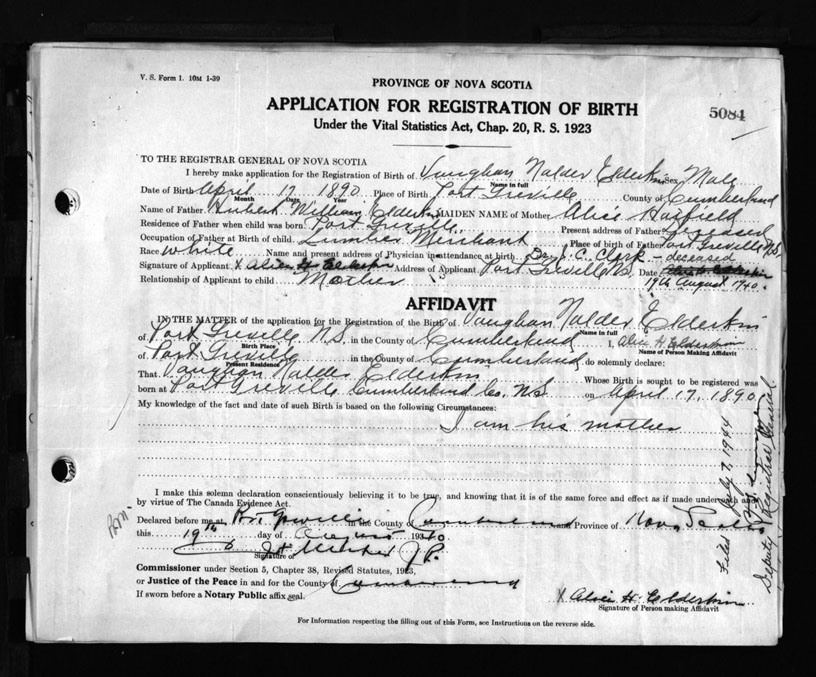 V. S. Form 1. 10M 1-39
PROVINCE OF NOVA SCOTIA
APPLICATION FOR REGISTRATION OF BIRTH
5084
Under the Vital Statistics Act, Chap. 20, R. S. 1923
TO THE REGISTRAR GENERAL OF NOVA SCOTIA
I hereby make application for the Registration of Birth of Vaughan Nalder Elderkin Sex Male
Name in full
Date of Birth April 17 1890 Place of Birth Port Greville County of Cumberland
Month Date Year
Name of Father Hubert William Elderkin MAIDEN NAME of Mother Alice Hatfield
Residence of Father when child was born Port Greville Present address of Father deceased
Occupation of Father at Birth of child Lumber Merchant Place of birth of Father Port Greville N.S.
Race white Name and present address of Physician in attendance at birth Dr. C. Clark - deceased
Signature of Applicant X Alice H Elderkin Address of Applicant Port Greville N.S. Date
19th August 1940.
Relationship of Applicant to child Mother
AFFIDAVIT
IN THE MATTER of the application for the Registration of the Birth of Vaughan Nalder Elderkin
Name in full
of Port Greville N.S. in the County of Cumberland I, Alice H Elderkin
Birth Place Name of Person Making Affidavit
of Port Greville in the County of Cumberland do solemnly declare:
Present Residence
That Vaughan Nalder Elderkin Whose Birth is sought to be registered was
born at Port Greville Cumberland Co. N.S. on April 17, 1890
My knowledge of the fact and date of such Birth is based on the following Circumstances:
I am his mother
I make this solemn declaration conscientiously believing it to be true, and knowing that it is of the same force and effect as if made under oath and
by virtue of The Canada Evidence Act.
Declared before me at Pt. Greville in the County of Cumberland and Province of Nova Scotia
this 19th day of August 1940
Signature of J.P.
Commissioner under Section 5, Chapter 38, Revised Statutes, 1923,
or Justice of the Peace in and for the County of Cumberland
If sworn before a Notary Public affix seal.
X Alice H. Elderkin
Signature of Person making Affidavit
For Information respecting the filling out of this Form, see Instructions on the reverse side.
Filed July 7, 1944
Deputy Registrar General.